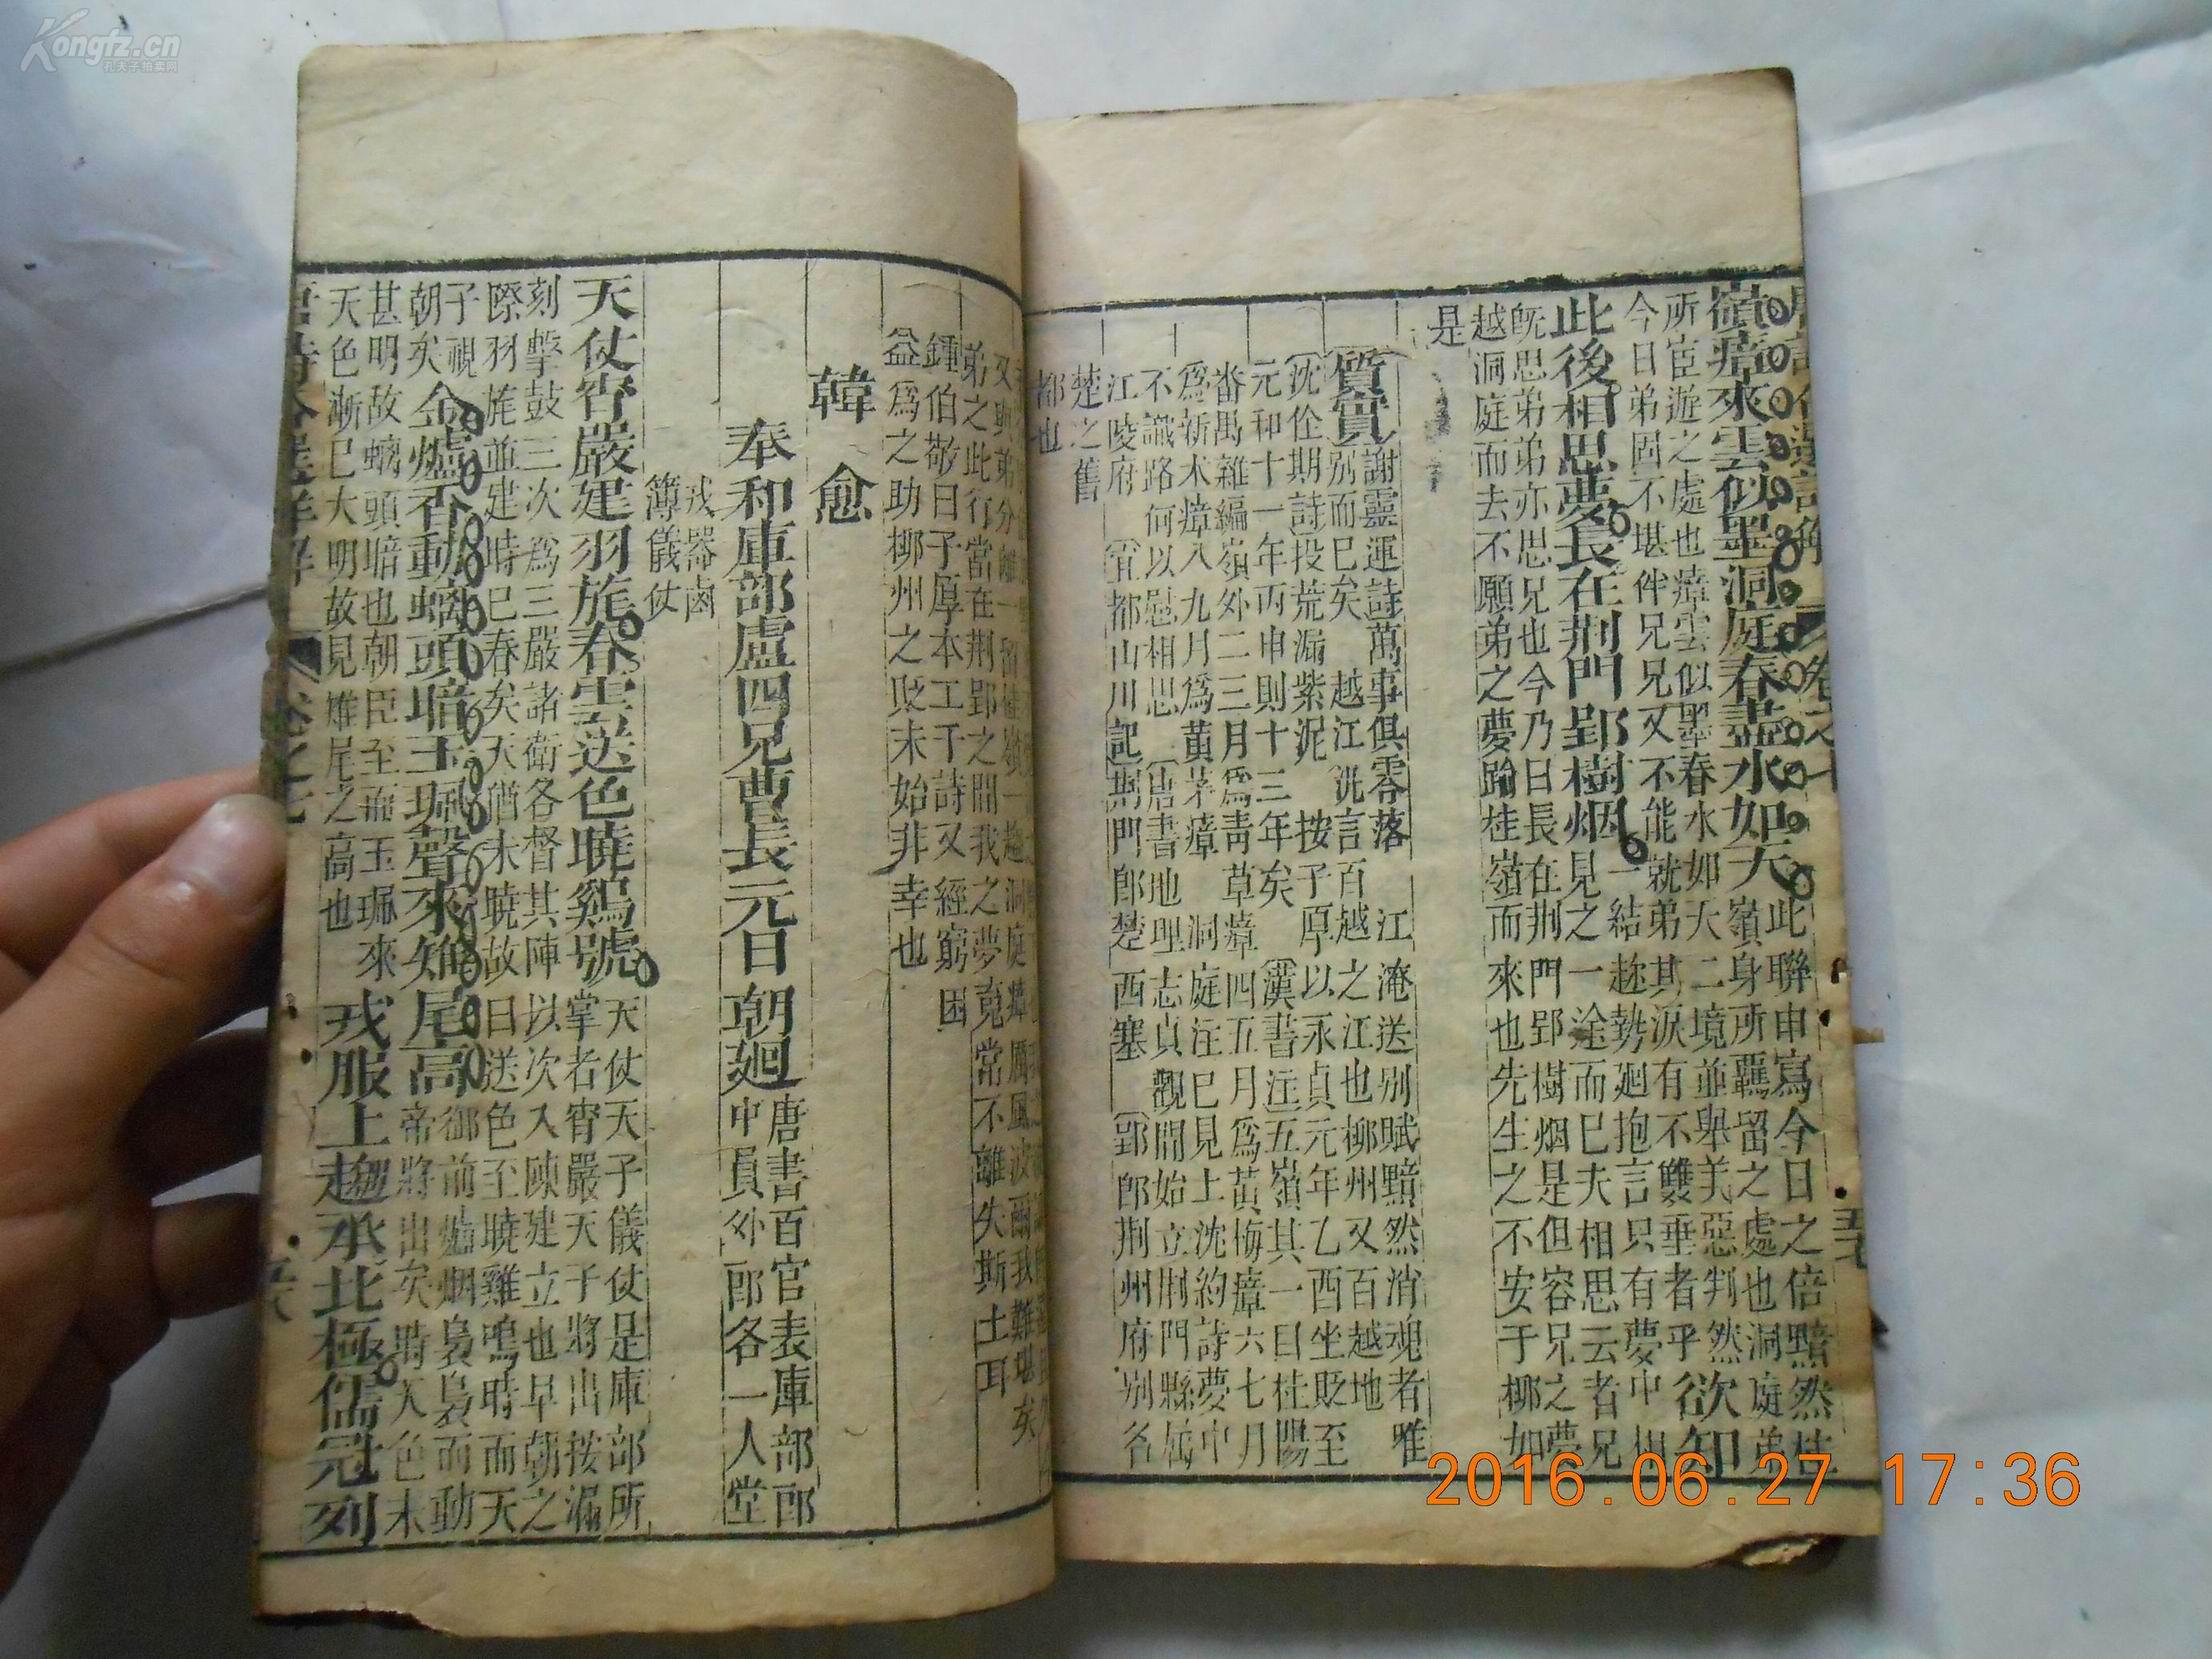 嶺瘴來雲似墨洞庭春盡水如天此聯申寫今日之倍黯然桂
嶺身所羈留之處也洞庭弟
所宦遊之處也瘴雲似墨春水如天二境並舉美惡判然欲知
今日弟固不堪伴兄兄又不能就弟其淚有不雙垂者乎
此後相思夢長在荆門郢樹烟一結趂勢廻抱言只有夢中相
見之一途而已夫相思云者兄
既思弟弟亦思兄也今乃曰長在荆門郢樹烟是但容兄之夢
越洞庭而去不願弟之夢踰桂嶺而來也先生之不安于柳如
是
質實謝靈運詩萬事俱零落 江淹送别賦黯然消魂者唯
别而已矣 越江 㳘言百越之江也柳州又百越地
沈佺期詩投荒漏紫泥 按子厚以永貞元年乙酉坐貶至
元和十一年丙申則十三年矣 漢書注五嶺其一曰桂陽
番禺雜編嶺外二三月為青草瘴四五月為黃梅瘴六七月
為新木瘴八九月為黃茅瘴 洞庭注已見上沈約詩夢中
不識路何以慰相思 唐書地理志貞觀間始立荆門縣屬
江陵府 宜都山川記荆門郎楚西塞 郢郎荆州府别名
楚之舊
都也
弟之此行當在荆郢之間我之夢竟常不離失斯土耳
鍾伯敬曰子厚本工于詩又經窮困
益為之助柳州之貶未始非幸也
韓愈
奉和庫部盧四兄曹長元日朝廻唐書百官表庫部郎
中員外郎各一人堂
戎器鹵
簿儀仗
天仗宵嚴建羽旄春雲送色曉鷄號天仗天子儀仗是庫部所
掌者宵嚴天子將出按漏
刻擊鼓三次為三嚴諸衛各督其陣以次入陳建立也早朝之
際羽旄並建時已春矣天猶未曉故曰送色至曉雞鳴時而天
子視
朝矣金爐香動螭頭暗玉珮聲來雉尾高御前爐烟裊裊而動
帝將出矣時天色未
甚明故螭頭暗也朝臣至而玉珮來
天色漸已大明故見雉尾之高也戎服上趨承北極儒冠列
卷之七
2016.06.27 17:36
Kongfz.cn
孔夫子拍卖网